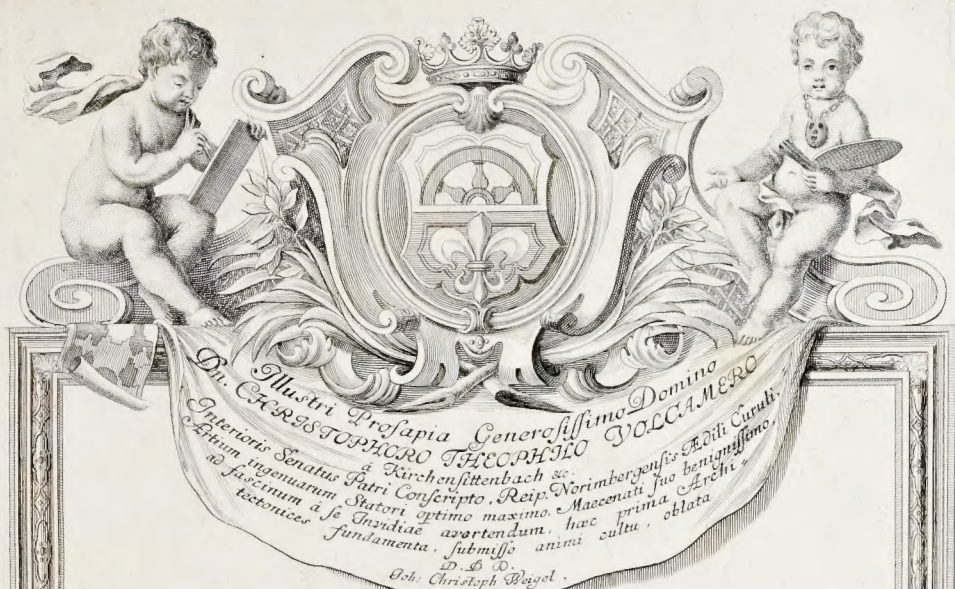 Illustri Prosapia Generosissimo Domino
Dn. CHRISTOPHORO THEOPHILO VOLCAMERO
à Kirchensittenbach &c.
Interioris Senatus Patri Conscripto, Reip. Norimbergensis Ædili Curuli,
Artium ingenuarum Statori optimo maximo, Maecenati suo benignissimo,
ad fascinum à se Invidiae avertendum, haec prima Archi-
tectonices fundamenta, submisso animi cultu, oblata
D. D. D.
Joh: Christoph Weigel,